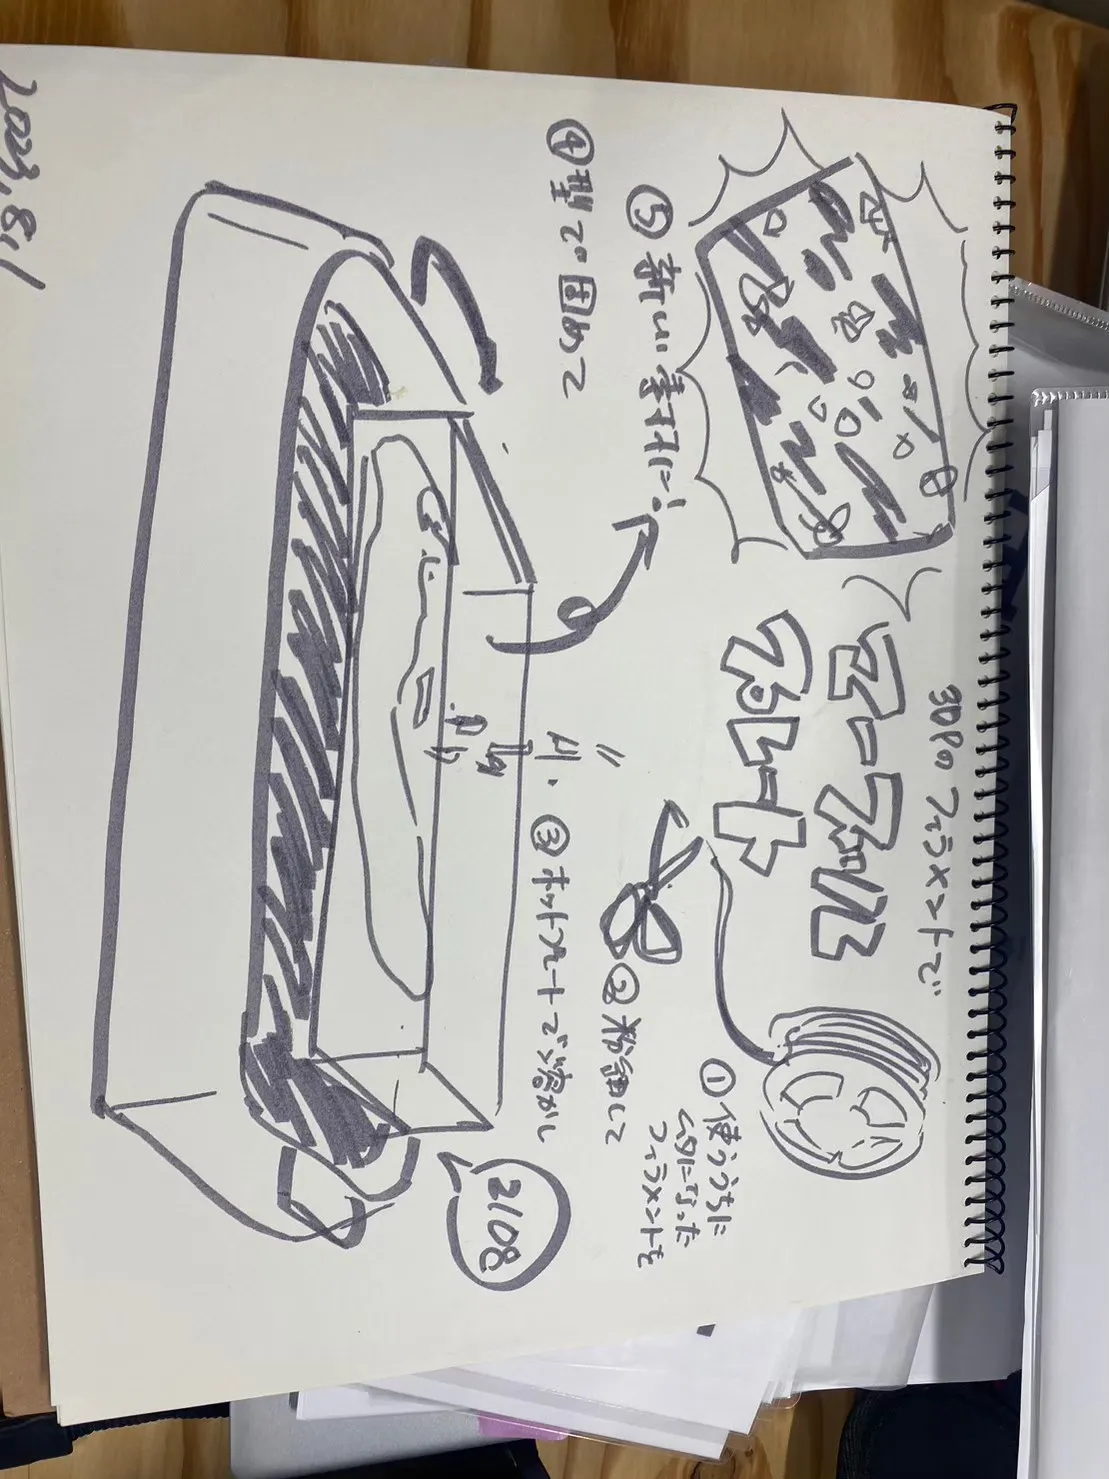 3DPのフィラメントで
マーブル
プレート
①使ううちに
ムダになった
フィラメントを
②粉細して
③ホットプレートで溶かし
④型で固めて
⑤新しい素材に!
2108
2023.8.1